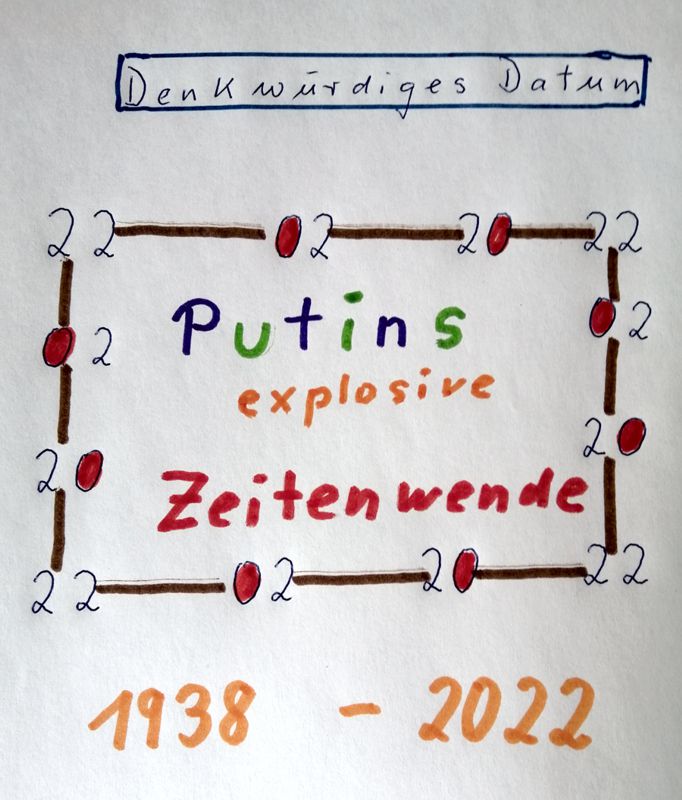 Denkwürdiges Datum
22 — 02 — 20 — 22
02 02
Putins
explosive
20 20
Zeitenwende
22 — 02 — 20 — 22
1938 - 2022